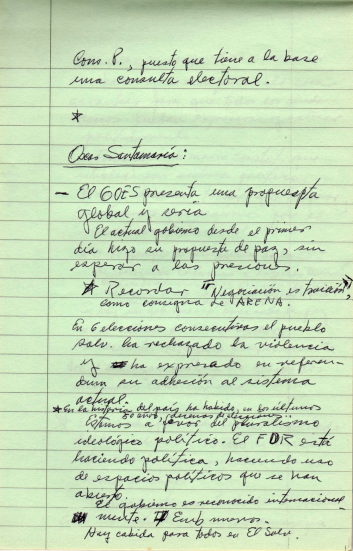 Cons. P., puesto que tiene a la base
una consulta electoral.
*
Oscar Santamaría:
— El GOES presenta una propuesta
global y seria
El actual gobierno desde el primer
día hizo su propuesta de paz, sin
esperar a las presiones.
* Recordar "Negociación es traición",
como consigna de ARENA.
En 6 elecciones consecutivas el pueblo
salv. ha rechazado la violencia
y ha expresado en referen-
dum su adhesión al sistema
actual.
* En la historia del país ha habido, en los últimos
50 años, decenas de elecciones.
Estamos a favor del pluralismo
ideológico político. El FDR está
haciendo política, haciendo uso
de espacios políticos que se han
abierto.
El gobierno es reconocido internacional-
mente. Emb
Hay cabida para todos en El Salv.